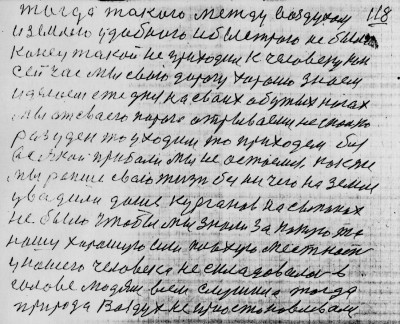 тогда такого между воздухом 118
и землею удобного и быстрого не было
конец такой не приходил к человеку как
сейчас мы свою дорогу хорошо знаем
и делаем ежедну на своих обутых ногах
мы от своего порога отрываемся несколько
раз уден то уходим то приходим без
всякой прибыли мы не остаемся как же
мы ранше свою жизнь без ничего на земли
увидили даже курганов на
не было чтобы мы знали за какую то
нашу хорошую или плохую местность
у нашего человека не складовалось в
голове людям всем слушила тогда
природа воздух не приостановливали